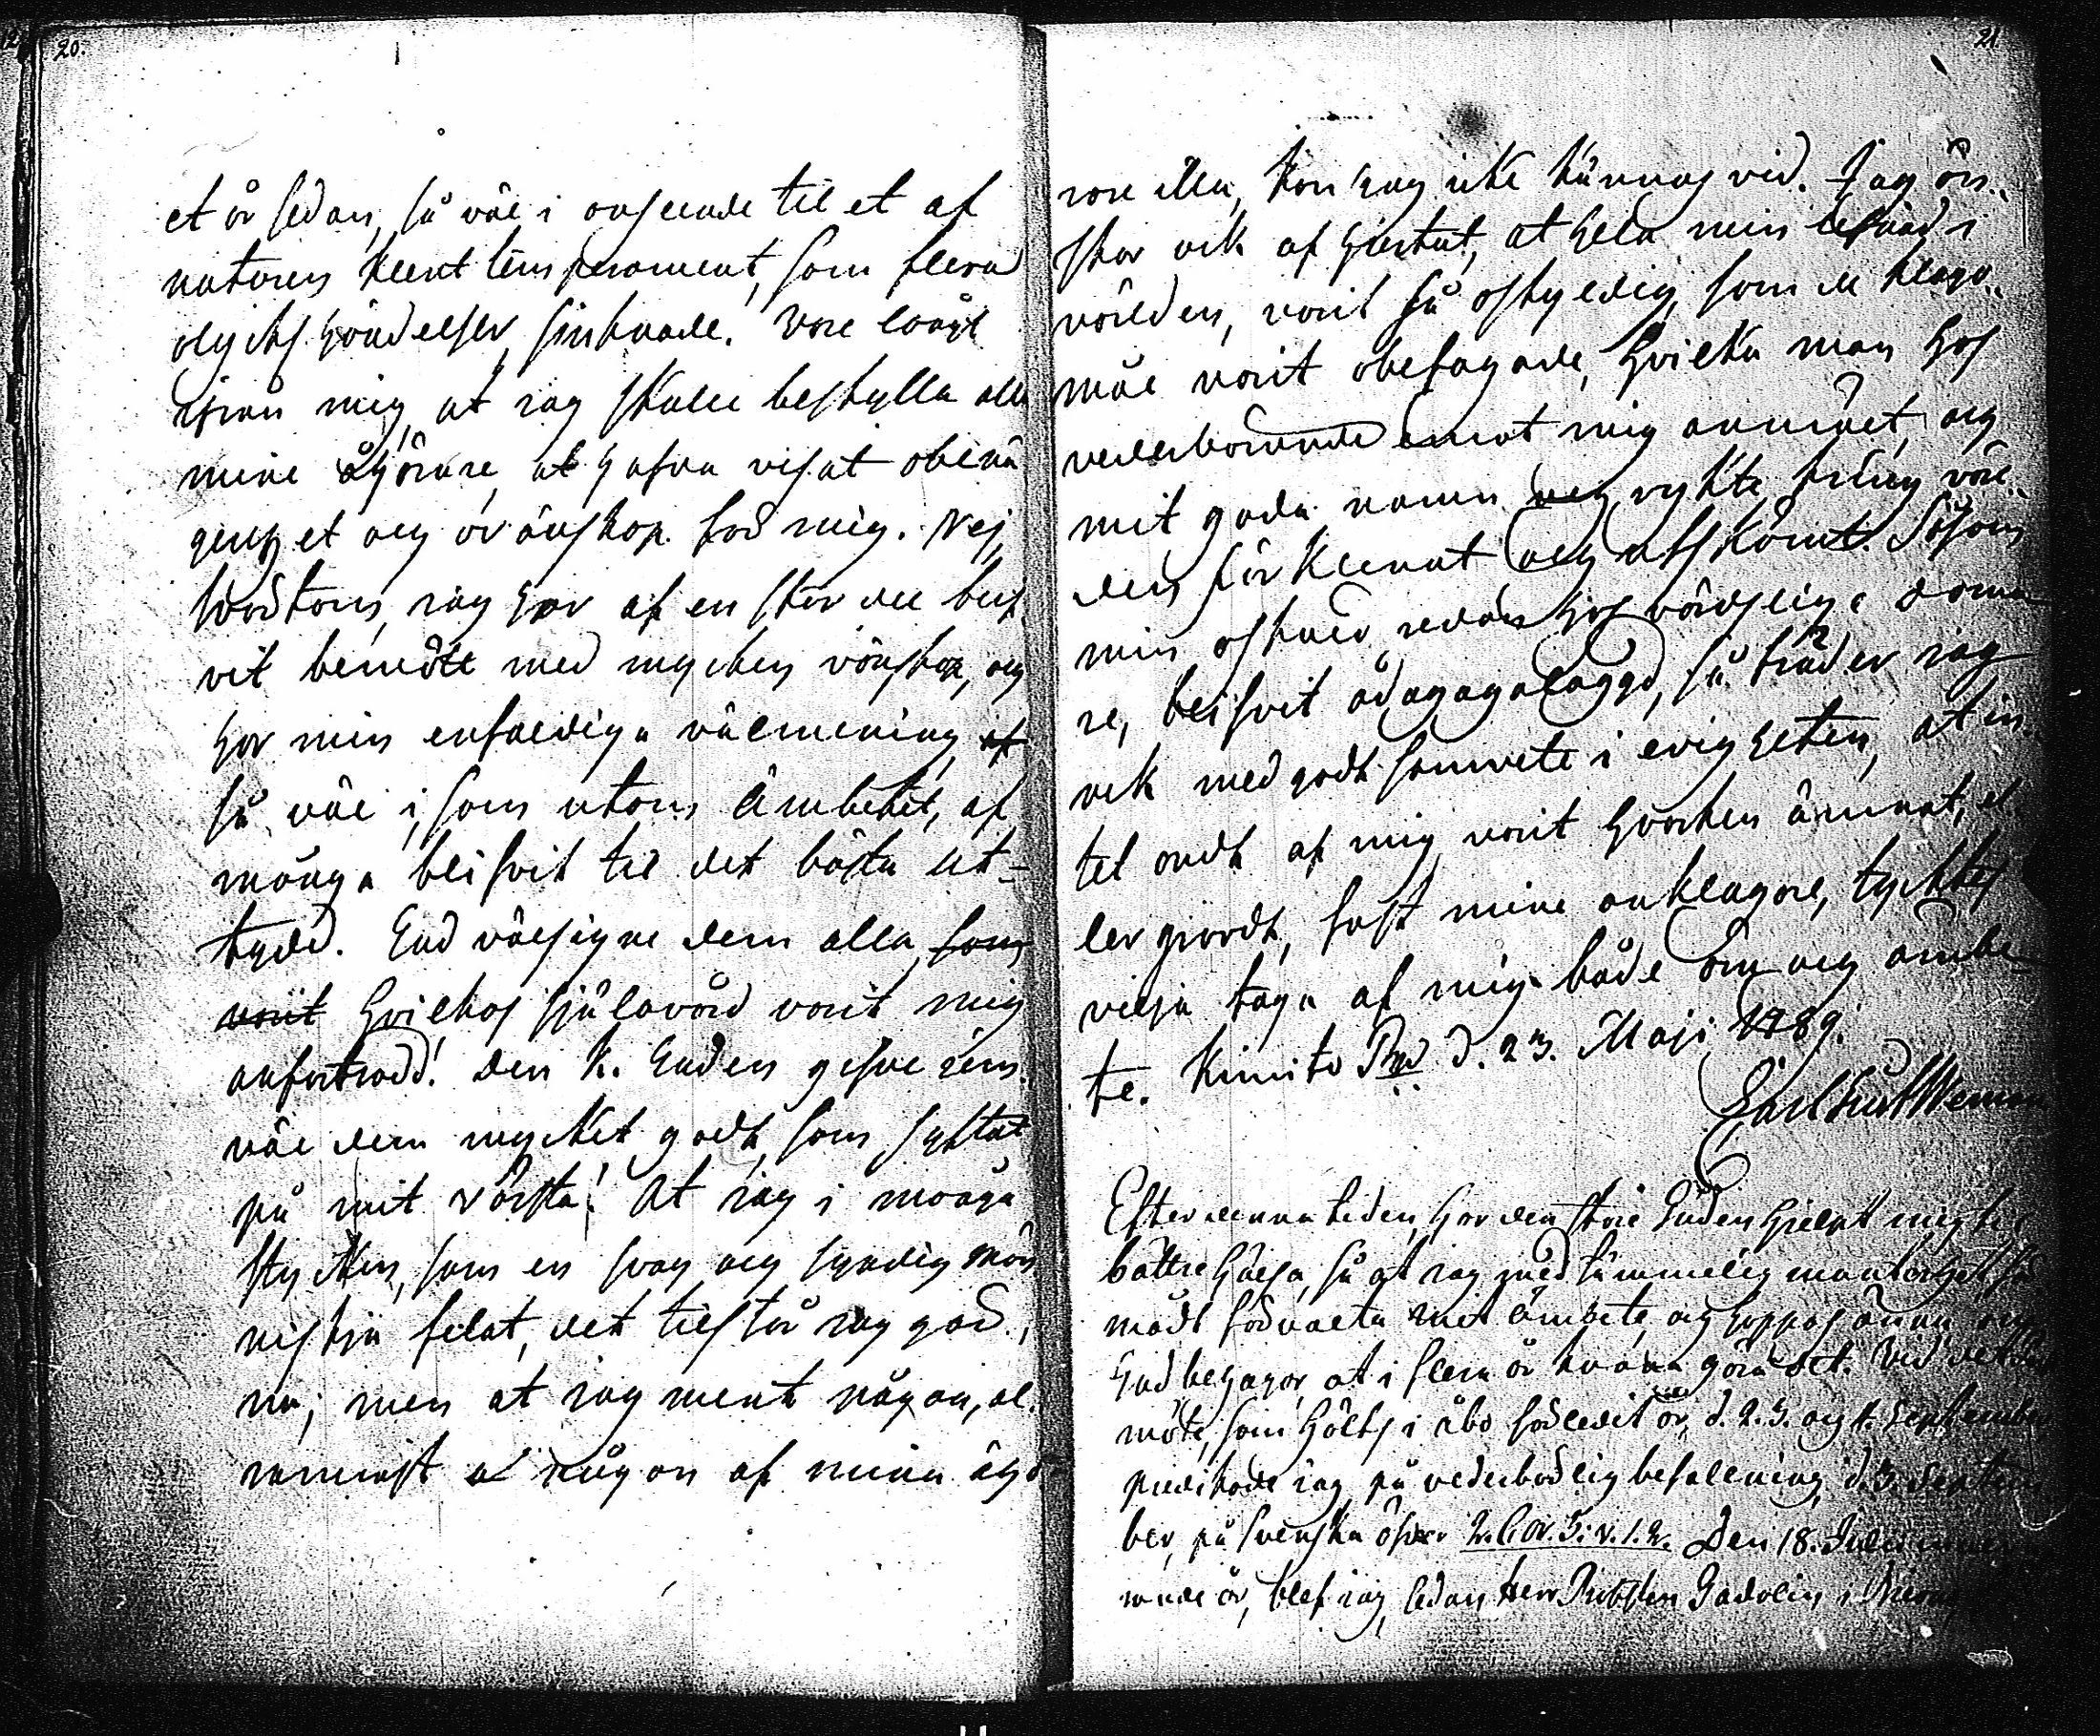 20.
et år sedan, så väl i anseende til et af
naturen klent temperament, som flera
olycks händelser, sinknade. Vore långt
ifrån mig, at jag skulle beskylla alla
mine åhörare, at hafva visat obenä-
genhet och ovänskap för mig. Nej,
förutom, jag har af en stor del blif-
vit bemött med mycken vänskap, och
har min enfaldiga välmening, af
så väl i, som utom Ämbetet, af
många blifvit til det bästa ut-
tydd. Gud välsigne dem alla som
varit hvilkas själavård varit mig
anförtrodd! Den K. Guden gifve jem-
väl dem mycket godt, som syftat
på mit värsta! At jag i många
stycken, som en svag och syndig män-
niskja felat, det tilstår jag gär-
na; men at jag ment någon, al-
raminst a någon af mina åhö-
21
rare illa, kan jag icke kännas vid. Jag ön-
skar ock af hjertat, at hela min lefnad i
världen, varit så oskyldig, som de klago-
mål varit obefogade, hvilka man hos
vederbörande emot mig anmält, och
mit goda namn och rykte kring värl-
den förklenat och utskämt. Såsom
min oskuld redan hos värdsliga doma-
re, blifvit ådagagalaggd, så träder jag
ock med godt samvete i evigheten, at in-
tet ondt af mig varit hvarken ämnat, el-
ler giordt, fast mine anklagare, tycktes
vilja taga af mig både Äm och ämbe-
te. Kimito d. 23. Maji 1789.
Carl Gust Weman
Efter denna tiden, har den store Guden hjelpt mig til
bättre hälsa, så at jag med tämmelig munterhet, för-
mådt förvalta mit ämbete, och hoppas ännu om
Gud behagar, at i flera år kunna göra det. Vid det
möte, som hölts i Åbo förledit år, d. 2. 3. och 4. September
predikade jag, på vederbörlig befallning d. 3. Septem-
ber, på Svenska öfver 2. Cor. 5: v. 1. 2. Den 18. Julii inneva-
rande år, blef jag, sedan Herr Probsten Gadolin i